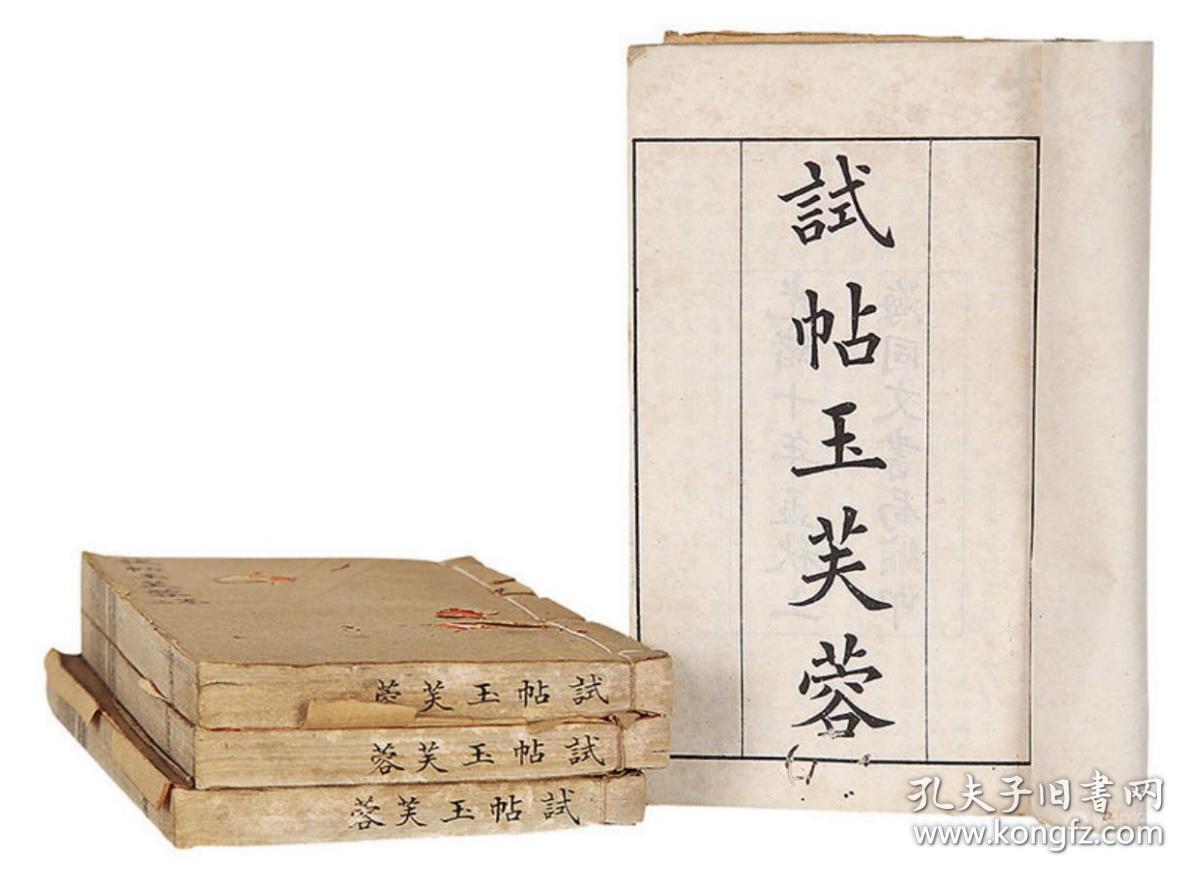 試帖玉芙蓉
試帖玉芙蓉
試帖玉芙蓉
試帖玉芙蓉
孔夫子旧書网
www.kongfz.com